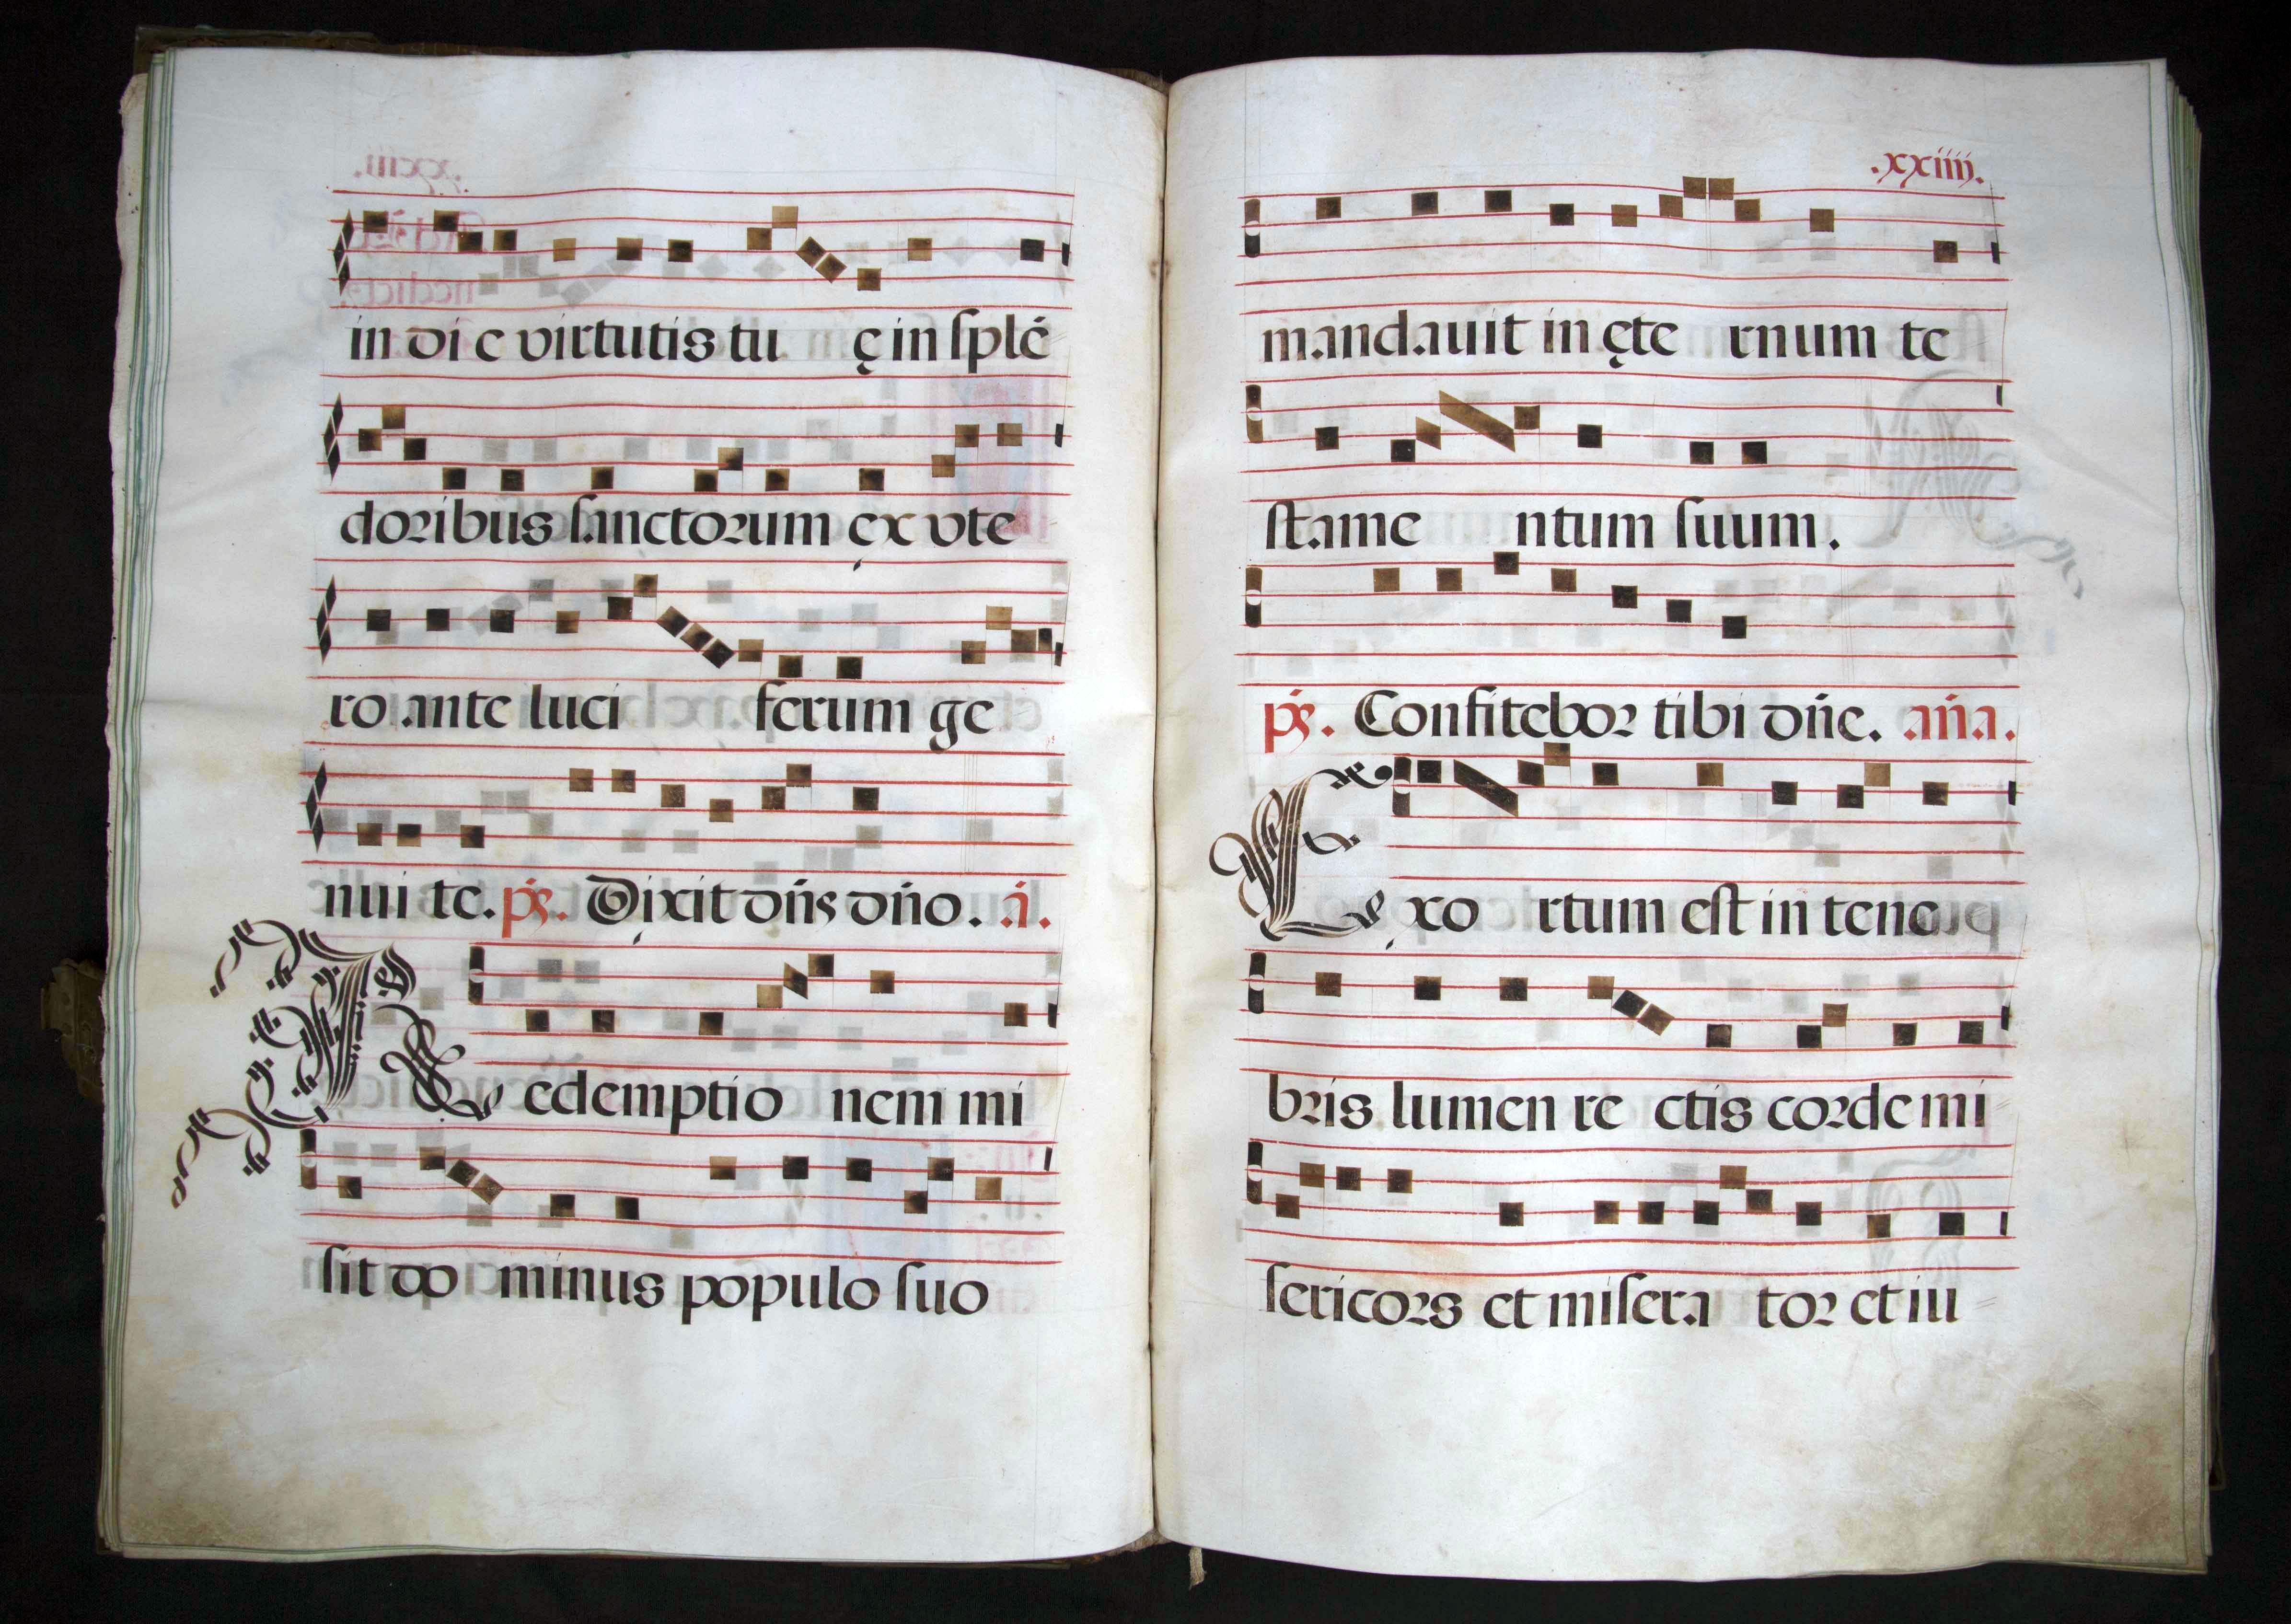 in die virtutis tu ę in splē
doribus sanctorum ex vte
ro ante luci ferum ge
nui te. ps. Dixit dn̄s dn̄o. a̅.
Redemptio nem mi
sit do minus populo suo
.xxiiij.
mandauit in ęte rnum te
stame ntum suum.
ps. Confitebor tibi dn̄e. an̄a.
Exo rtum est in tene
bris lumen re ctis corde mi
sericors et misera tor et iu